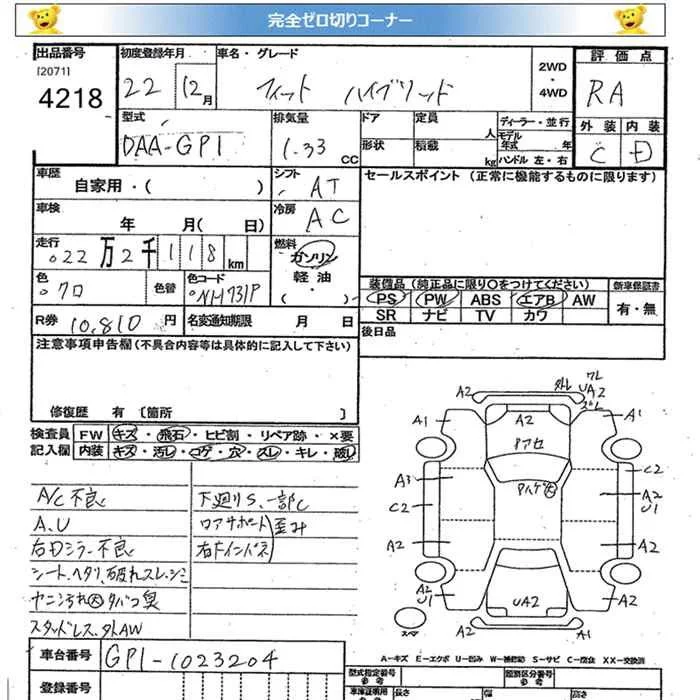 完全ゼロ切りコーナー
出品番号
[2071]
4218
初度登録年月
22 12月
車名・グレード
フィット ハイブリッド
2WD
・
4WD
評価点
RA
外装 内装
C D
型式
DAA-GP1
排気量
1.33 CC
ドア
定員 人
ディーラー・並行
モデル年式 年
形状
積載 kg
ハンドル 左・右
車歴
自家用・( )
シフト
AT
セールスポイント (正常に機能するものに限ります)
車検
年 月( 日)
冷房
AC
走行
022万2千118km
燃料
ガソリン
軽油
・
( )
色
クロ
色替
色コード
NH731P
装備品(純正品に限り○をつけてください)
新車保証書
PS PW ABS エアB AW
SR ナビ TV カワ
有・無
R券 10,810円
名変通知期限 月 日
後日品
注意事項申告欄(不具合内容等は具体的に記入して下さい)
修復歴 有 [箇所 ]
検査員 FW キズ・飛石・ヒビ割・リペア跡・×要
記入欄 内装 キズ・汚レ・コゲ・穴・スレ・キレ・破レ
A/C不良
A.U
右Dミラー不良
シート、ヘタリ、破れスレ、シミ
ヤニ汚れ大タバコ臭
スタッドレス、外AW
下廻りS、一部C
ロアサポート 歪み
右Fインパネ
A2
外レ
ワレ
UA2
ズレ
A1
A2
A1
Pアセ
A3
C2
C2
A2
U1
A2
A2
A2
U1
UA2
A2
A1
A2
スペア
A-キズ E-エクボ U-凹み W-補修跡 S-サビ C-腐食 XX-交換済
車台番号
GP1-1023204
登録番号
型式指定番号
参考
類別区分番号
参考
車庫証明用
参考
長さ
幅
高さ